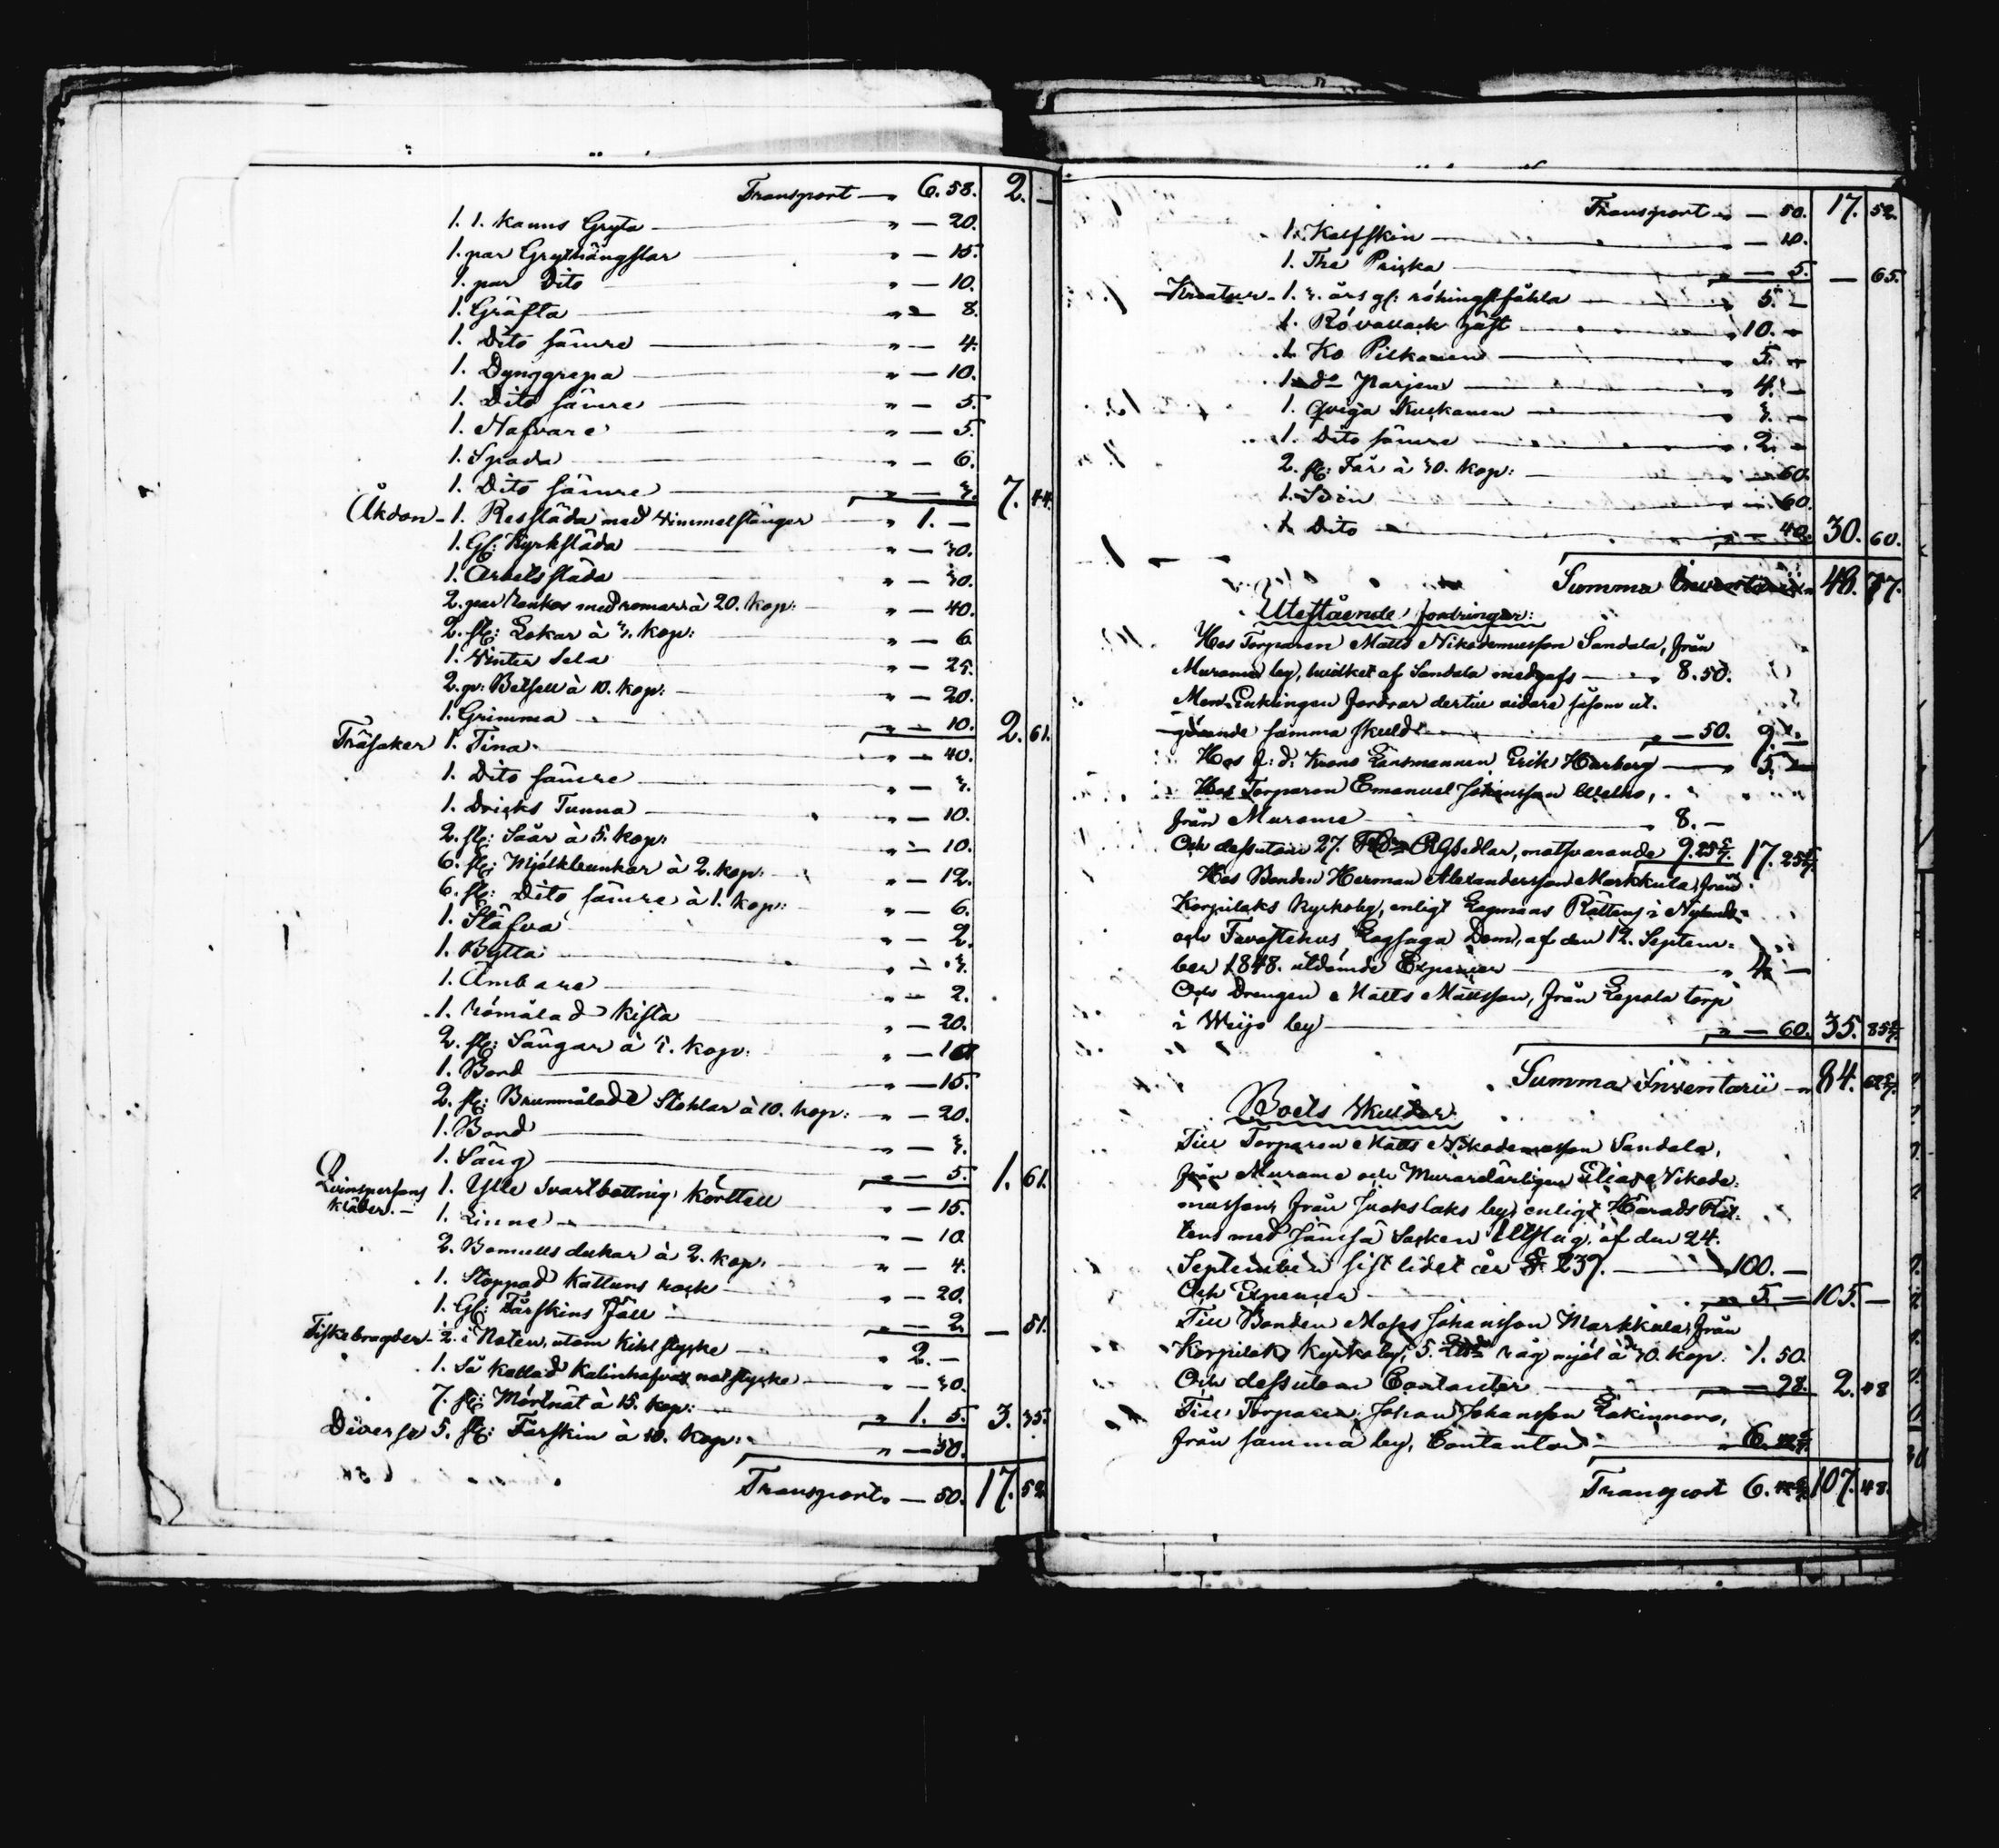 Transport — " 6. 58. 2. —
1. 1. Kanns Gryta — " — 20.
1. par Grythängslar — " — 15.
1. par Dito — " — 10.
1. Gräfta — " — 8.
1. Dito sämre — " — 4.
1. Dynggrepa — " — 10.
1. Dito sämre — " — 5.
1. Nafvare — " — 5.
1. Spada — " — 6.
1. Dito sämre — " — 3. 7. 44.
Åkdon - 1. Ressläda med Himmelstänger — " 1. —
1. Gl: Kyrksläda — " — 30.
1. Arbetssläda — " — 30.
2. par med romar à 20. kop: — " — 40.
2. st: Lokar à 3. kop: — " — 6.
1. Vinter Sela — " — 25.
2. pr: Betsell à 10. kop: — " — 20.
1. Grimma — " — 10. 2. 61.
Träsaker 1. Tina — " — 40.
1. Dito sämre — " — 3.
1. Dricks Tunna — " — 10.
2. st: Såår à 5. kop: — " — 10.
6. st: Mjölkbunkar à 2. kop: — " — 12.
6. st: Dito sämre à 1. kop: — " — 6.
1. Stäfva — " — 2.
1. Bytta — " — 3.
1. Ämbare — " — 2.
1. römålad Kista — " — 20.
2. st: Sängar à 5. kop: — " — 10.
1. Bord — " — 15.
2. st: Brunmålade Stohlar à 10. kop: — " — 20.
1. Bord — " — 3.
1. Säng — " — 5. 1. 61.
Qvinspersons 1. Ylle Svartbottnig Körttell — " — 15.
kläder. — 1. Linne — " — 10.
2. Bomulls dukar à 2. kop: — " — 4.
1. Stoppad Kattuns rock — " — 20.
1. Gl: Fårskins Fäll — " — 2. — 51.
Fiskebragder - ½ i Noten, utom Kihlstycke — " 2. —
1. Så kallad Kalinhafvas notstycke — " — 30.
7. st: Mörtnät à 15. kop: — " 1. 5. 3. 35.
Diverse 5. st: Fårskin à 10. kop: — " — 50.
Transport " — 50. 17. 52.
Transport " — 50. 17. 52.
1. Kalfskin — " — 10.
1. Piska — " — 5. — 65.
Kreatur - 1. 3. års gl: röhingstfåhla — " 5. —
1. Rövallack häst — " 10. —
1. Ko — " 5. —
1. do — " 4. —
1. Qviga — " 3. —
1. Dito sämre — " 2. —
2. st: Får à 30. kop: — " — 60.
1. Svin — " — 60.
1. Dito — " — 40. 30. 60.
Summa 48. 77.
Utestående fordringar:
Hos Torparen Matts Nikodemusson Sandala, från
Murame by, hvilket af Sandala medgafs — " 8. 50.
Men Enklingen fordrar dertill vidare såsom ut-
görande samma skuld — " — 50. 9. —
Hos f: d: Krono Länsmannen Erik Harberg — " 5. —
Hos Torparen Emanuel Johansson
från Murame — " 8. —
Och dessutom 27. sedlar, motsvarande 9. 25 5/7. 17. 25 5/7.
Hos Bonden Herman Alexandersson Markkula, från
Korpilaks Kyrkoby, enligt Lagmans Rättens i Nylands
och Tavastehus Lagsaga Dom, af den 12. Septem-
ber 1848. utdömde Expenser — " 4. —
Och Drengen Matts Mattsson, från Lepola torp
i by — " — 60. 35. 85 5/7.
Summa Inventarii — " 84. 62 5/7.
Boets Skulder:
Till Torparen Matts Nikodemusson Sandala,
från Murame och Murarelärlingen Elias Nikode-
musson, från Juokslaks by, enligt Härads Rät-
tens med Jämsä Socken Utslag, af den 24.
September sistlidet år § 237. — " 100. —
Och Expenser — " 5. — 105. —
Till Bonden Moses Johansson Markkula, från
Korpilaks Kyrkoby, 5. rågmjöl à 30. kop: 1. 50.
Och dessutom Contanter — " — 98. 2. 48
Till Torparen Johan Johansson Lakinmoro,
från samma by, Contanter — " 6.
Transport 6. 107. 48.